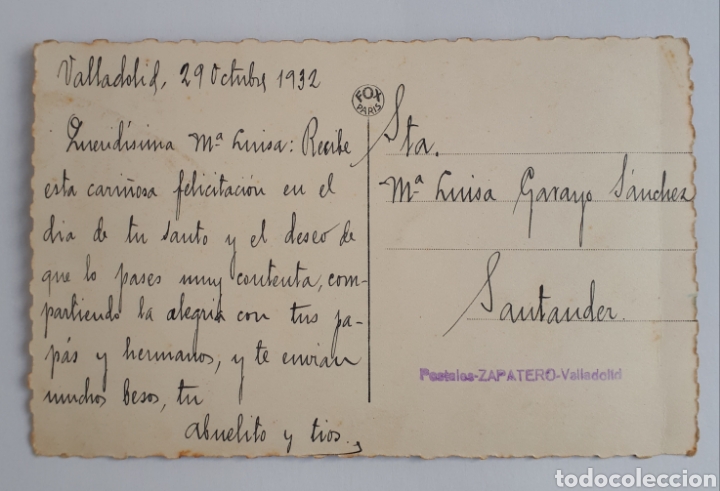 Valladolid, 29 Octubre 1932
Queridísima Mª Luisa: Recibe
esta cariñosa felicitación en el
dia de tu santo y el deseo de
que lo pases muy contenta, com-
partiendo la alegria con tus pa-
pás y hermanos, y te envian
muchos besos, tu
abuelito y tios.
FOX
PARIS
Sta.
Mª Luisa Garayo Sánchez
Santander.
Postales-ZAPATERO-Valladolid
todocoleccion